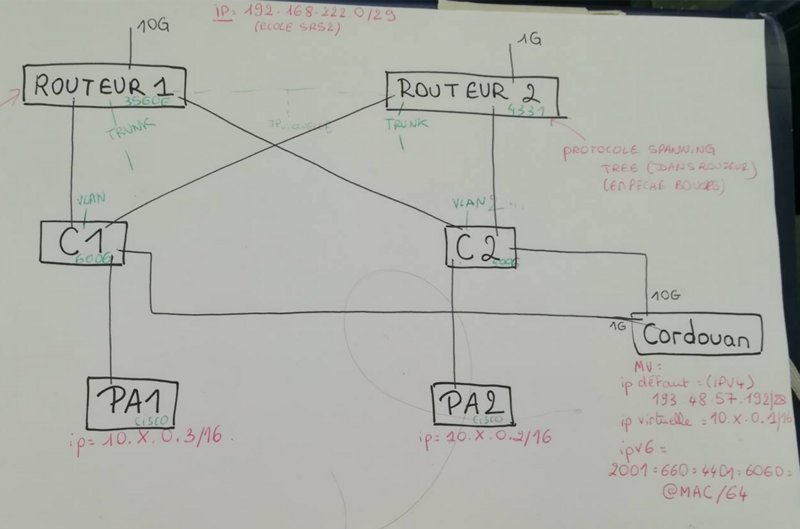 IP: 192.168.222.0/29
(ECOLE SRS2)
10G
1G
ROUTEUR 1
3560E
ROUTEUR 2
4331
TRUNK
TRUNK
PROTOCOLE SPANNING
TREE (DANS ROUTEUR)
(EMPÊCHE BOUCLES)
VLAN
VLAN
C1
C2
10G
1G
Cordouan
PA1
CISCO
PA2
CISCO
ip= 10.X.0.3/16.
ip= 10.X.0.2/16
MV:
ip défaut = (IPV4)
193 48.57.192/28
ip virtuelle = 10.X.0.1/16
ipv6 =
2001:660:4401:6060:
@MAC/64